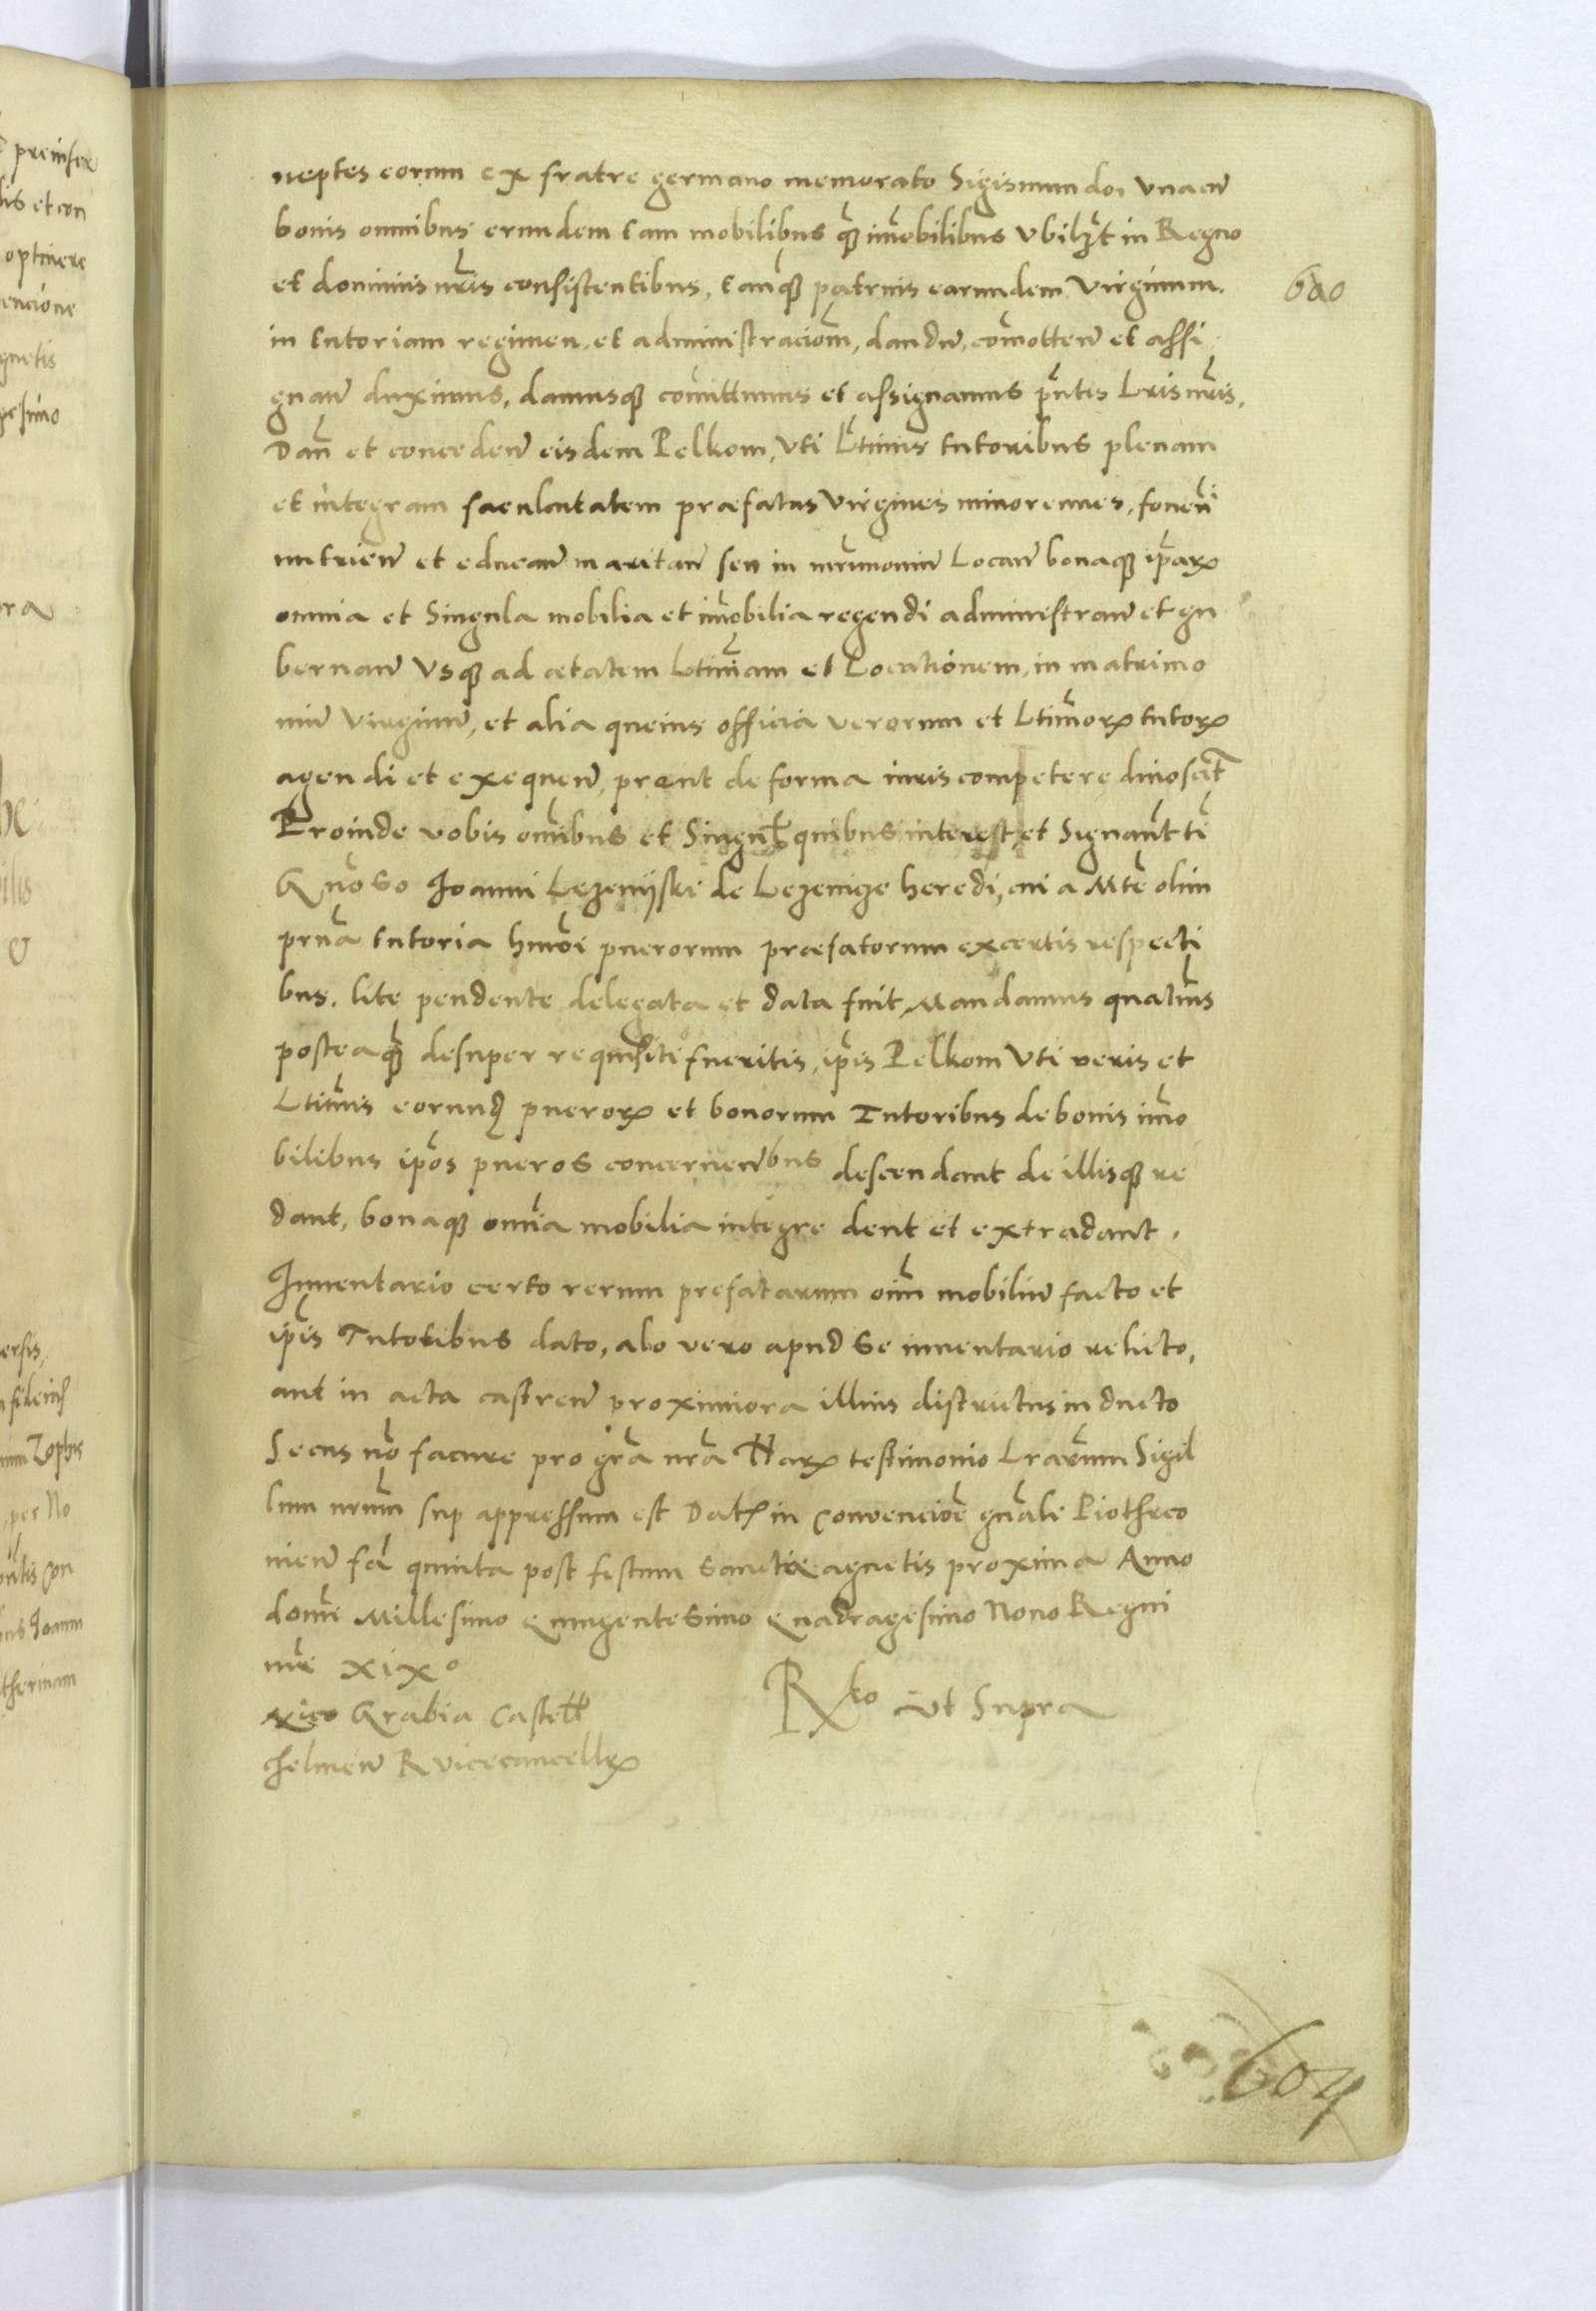 neptes eorum ex fratre germano memorato Sigismundo, vnacū
bonis omnibus erundem tam mobilibus q̃ꝫ im̃obilibus vbilꝫt in Regno
et dominiis nr̃is consistentibus, tanq̃ꝫ patruis earundem virginum.
600
in tutoriam regimen, et administraciom̃, dandū, com̃ottenͩ et assi
gnanͩ duximus, damusqꝫ com̃ittimus et assignamus p̃ntis Lr̃is nr̃is.
Dan̄ et concedenͩ eisdem Pelkom, vti Ltĩmis tutoribus plenam
et integram facultatem præfatas virgines minorennes, fouen̄i
nutrienͩ et educanͩ maritanͩ seu in mr̃imoniū Locanͩ bonaqꝫ ip̃arꝝ
omnia et Singula mobilia et im̃obilia regendi administranͩ et gu
bernanͩ vsqꝫ ad ætatem Ltĩmam et Locationem, in matrimo
niū virginū, et alia queuis officia verorum et Ltĩmorꝝ tutorꝝ
agendi et exequenͩ, prout de forma iuris competere dinoscit̃
Proinde vobis om̃ibus et Singul̃ꝫ quibus interest, et Signan̄t ti
Gñoso Joanni Lezenijski de Lezenicze heredi, cui a Mte olim
prñã tutoria hmõi puerorum præfatorum ex certis respecti
bus, lite pendente delegata et data fuit, Mandamus quatin̄s
posteaq̃ꝫ desuper requisiti fueritis, ip̃is Pelkom vti veris et
Ltim̃is eorunꝗ puerorꝝ et bonorum Tutoribus de bonis im̃o
bilibus ip̃os pueros concernenͩbus descendant de illisqꝫ ce
dant, bonaqꝫ om̃ia mobilia integre dent et extradant.
Inuentario certo rerum prefatarum oim̃ mobiliū facto et
ip̃is Tutoribus dato, alio vero apud se inuentario relicto,
aut in acta castrenͩ proximiora illius districtus inducto
Secus nõ facture pro gr̃a nr̃a Harꝝ testimonio Lr̃arum Sigil
lum nr̃um sup appressum est Datꝭ in convencioe gñali Piotrco
nienͩ fã quinta post festum sanctæ agnetis proxima Anno
domĩ Millesimo quingentesimo quadragesimo Nono Regni
nr̃i xixº
Nico Grabia Castell̃
Chelmenͩ R vicecancellꝝ
Rkto vt Supra
604